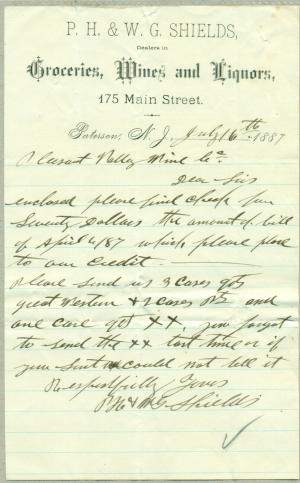 P. H. & W. G. SHIELDS,
Dealers in
Groceries, Wines and Liquors,
175 Main Street.
Paterson, N. J. July 16th 1887
Pleasant Valley Wine Co.
Dear Sirs
enclosed please find check for
Seventy Dollars the amount of bill
of April 4/87 which please place
to our Credit.
Please Send us 3 Cases qts
great Western & 2 Cases and
one Case XX, you forgot
to send the XX last time or if
you Sent could not tell it
Respectfully Yours
P H & W G Shields